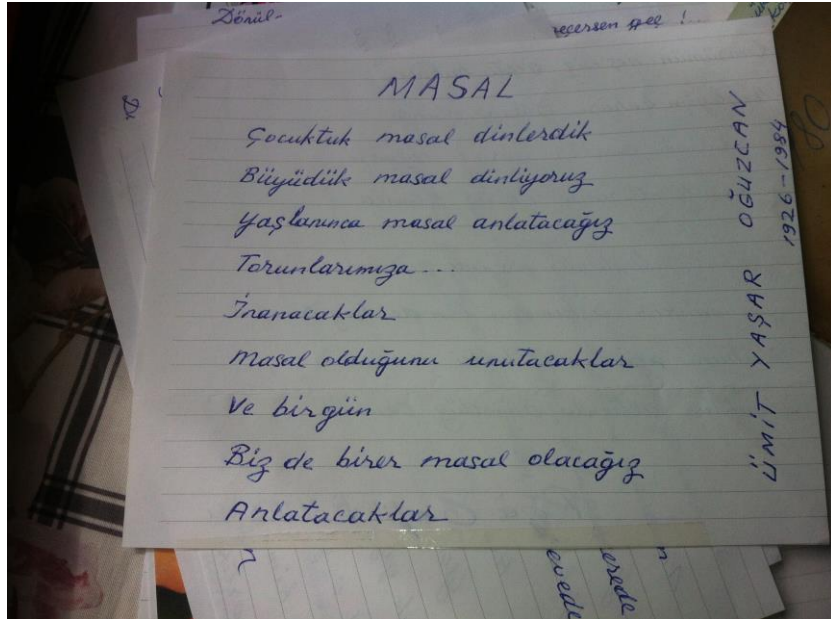 Dönül-
geçersen geç !
MASAL
Çocuktuk masal dinlerdik
Büyüdük masal dinliyoruz
Yaşlanınca masal anlatacağız
Torunlarımıza...
İnanacaklar
Masal olduğunu unutacaklar
Ve birgün
Biz de birer masal olacağız
Anlatacaklar
ÜMİT YAŞAR OĞUZCAN
1926-1984
evede
erede